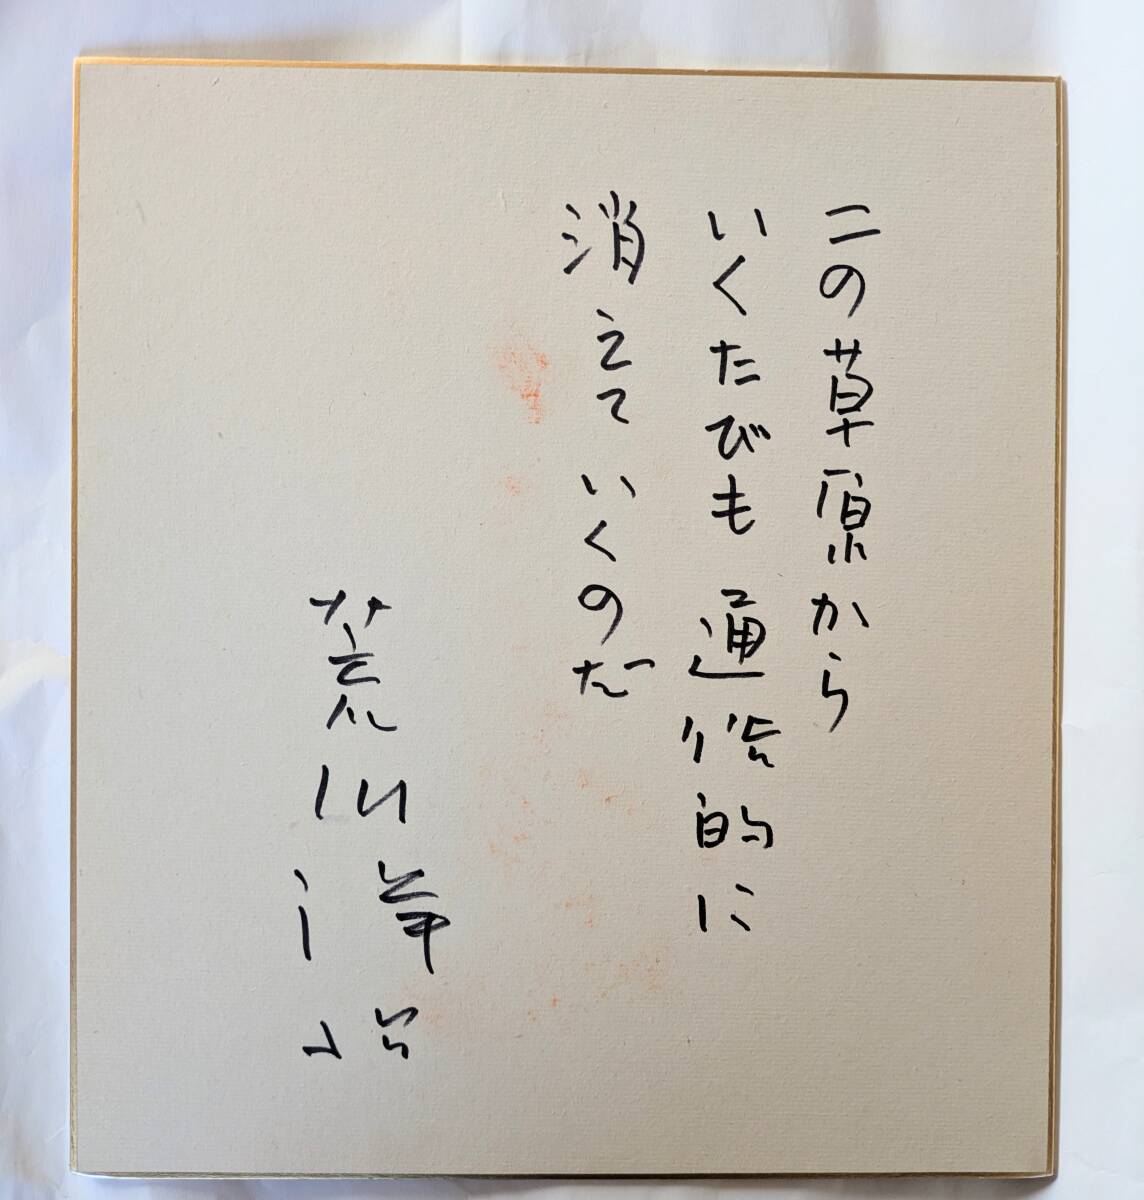 この草原から
いくたびも通俗的に
消えていくのだ
荒川洋治